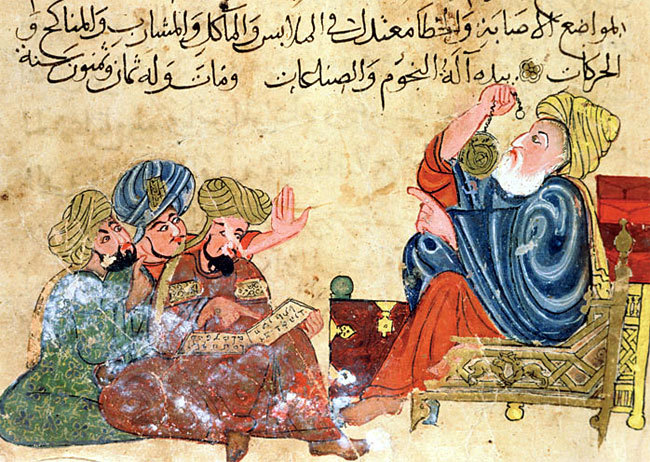 المواضع الاصابة والخطا معتدل في الملابس والمآكل والمشارب والمناكح و
الحركات بيده آلة النجوم والصناعات ومات وله ثمان وثمنون سنة